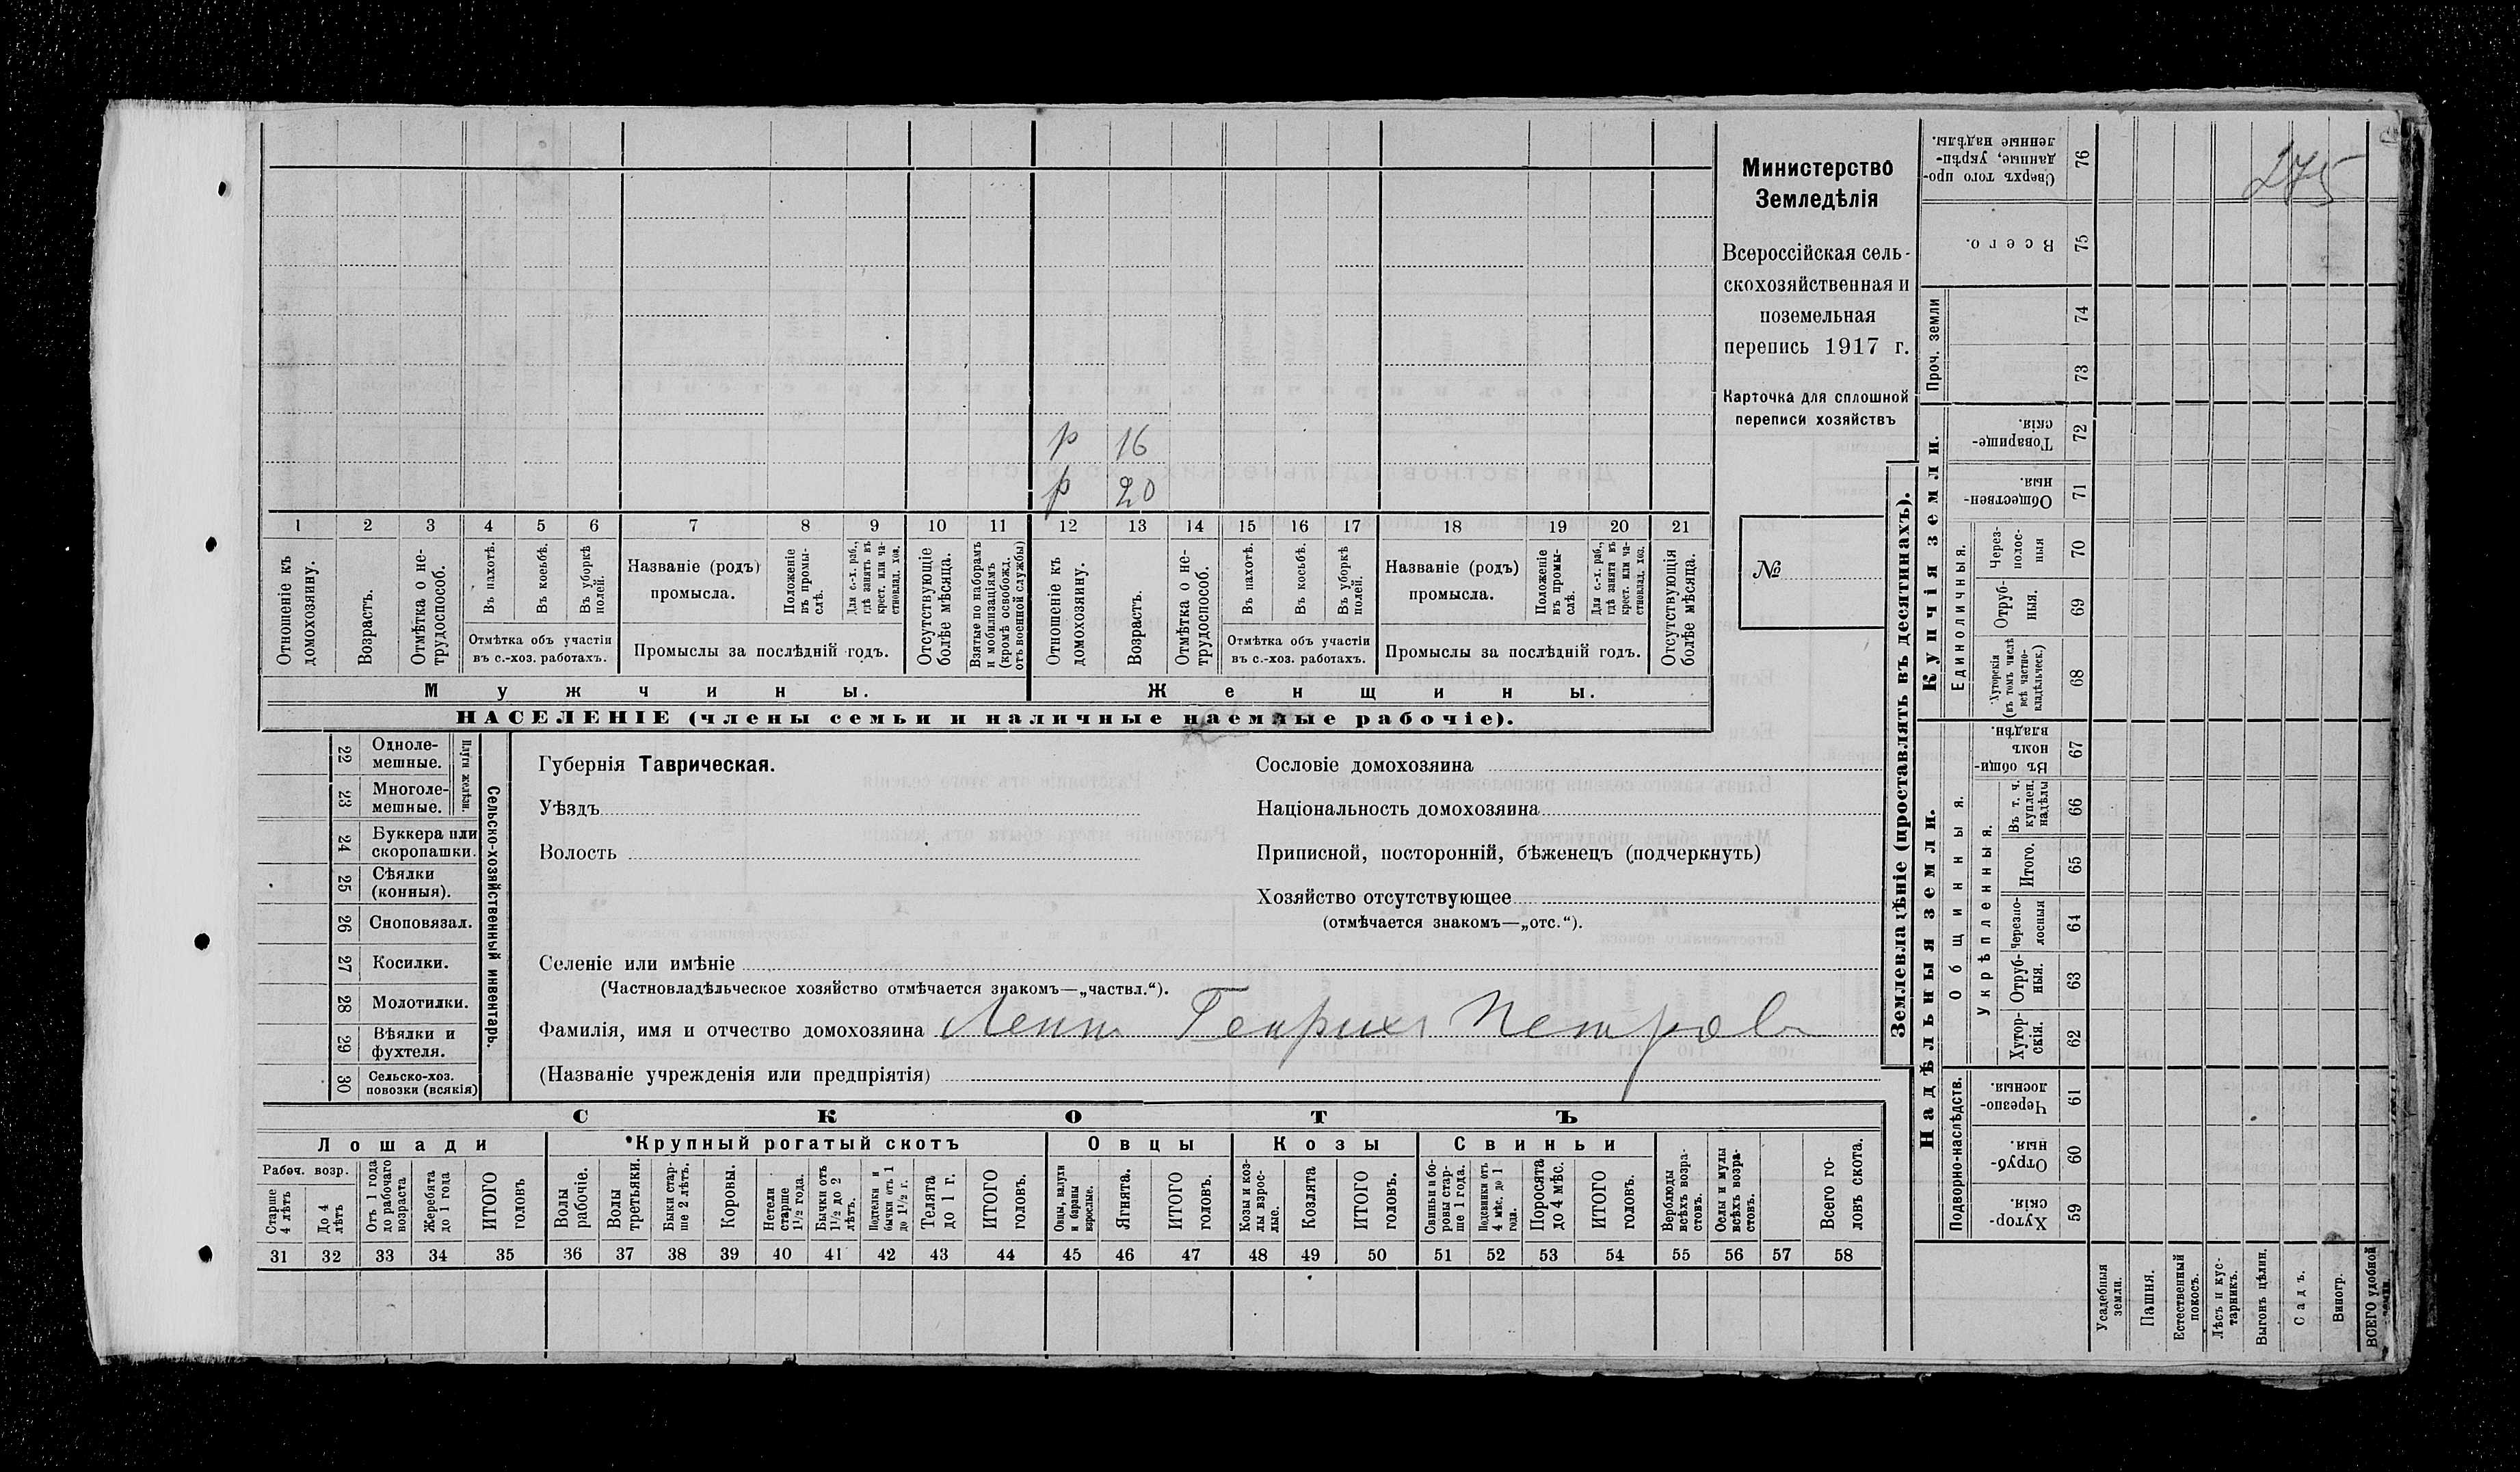 275
Министерство
Земледѣлія
Всероссійская сель-
скохозяйственная и
поземельная
перепись 1917 г.
Карточка для сплошной
переписи хозяйствъ
№
р 16
р 20
1 2 3 4 5 6 7 8 9 10 11 12 13 14 15 16 17 18 19 20 21
Отношеніе къ домохозяину.
Возрастъ.
Отмѣтка о не-трудоспособ.
Въ пахотѣ.
Въ косьбѣ.
Въ уборкѣ полей.
Отмѣтка объ участіи
въ с.-хоз. работахъ.
Названіе (родъ)
промысла.
Положеніе въ промы-слѣ.
Для с.-х. раб., гдѣ занятъ въ крест. или ча-стновлад. хоз.
Промыслы за послѣдній годъ.
Отсутствующіе болѣе мѣсяца.
Взятые по наборамъ и мобилизаціямъ (кромѣ освобожд. отъ военной службы)
Отношеніе къ домохозяину.
Возрастъ.
Отмѣтка о не-трудоспособ.
Въ пахотѣ.
Въ косьбѣ.
Въ уборкѣ полей.
Отмѣтка объ участіи
въ с.-хоз. работахъ.
Названіе (родъ)
промысла.
Положеніе въ промы-слѣ.
Для с.-х. раб., гдѣ занята въ крест. или ча-стновлад. хоз.
Промыслы за послѣдній годъ.
Отсутствующія болѣе мѣсяца.
Мужчины.
Женщины.
НАСЕЛЕНІЕ (члены семьи и наличные наемные рабочіе).
22 Одноле-мешные.
23 Многоле-мешные.
Плуги желѣзн.
24 Буккера или скоропашки.
25 Сѣялки (конныя).
26 Сноповязал.
27 Косилки.
28 Молотилки.
29 Вѣялки и фухтеля.
30 Сельско-хоз. повозки (всякія)
Сельско-хозяйственный инвентарь.
Губернія Таврическая.
Уѣздъ
Волость
Сословіе домохозяина
Національность домохозяина
Приписной, посторонній, бѣженецъ (подчеркнуть)
Хозяйство отсутствующее
(отмѣчается знакомъ—„отс.“).
Селеніе или имѣніе
(Частновладѣльческое хозяйство отмѣчается знакомъ—„частвл.“).
Фамилія, имя и отчество домохозяина Леппъ Генрихъ Петровъ
(Названіе учрежденія или предпріятія)
СКОТЪ
Лошади
Крупный рогатый скотъ
Овцы
Козы
Свиньи
Рабоч. возр.
Старше 4 лѣтъ
До 4 лѣтъ
Отъ 1 года до рабочаго возраста
Жеребята до 1 года
ИТОГО головъ
Волы рабочіе.
Волы третьяки.
Быки стар-ше 2 лѣтъ.
Коровы.
Нетели старше 1½ года.
Бычки отъ 1½ до 2 лѣтъ.
Подтелки и бычки отъ 1 до 1½ г.
Телята до 1 г.
ИТОГО головъ.
Овцы, валухи и бараны взрослые.
Ягнята.
ИТОГО головъ.
Козы и коз-лы взрос-лые.
Козлята
ИТОГО головъ.
Свиньи и бо-ровы стар-ше 1 года.
Подсвинки отъ 4 мѣс. до 1 года.
Поросята до 4 мѣс.
ИТОГО головъ.
Верблюды всѣхъ возра-стовъ.
Ослы и мулы всѣхъ возра-стовъ.
Всего го-ловъ скота.
31 32 33 34 35 36 37 38 39 40 41 42 43 44 45 46 47 48 49 50 51 52 53 54 55 56 57 58
Землевладѣніе (проставлять въ десятинахъ).
Купчія земли.
Надѣльныя земли.
Сверхъ того про-данные, укрѣп-ленные надѣлы. 76
Всего. 75
Проч. земли
74
73
Товарище-скія. 72
Обществен-ныя. 71
Единоличныя.
Через-полос-ныя 70
Отруб-ныя. 69
Хуторскія (въ томъ числѣ всѣ частно-владѣльческ.) 68
Общинныя.
Въ общи-номъ владѣн. 67
Укрѣпленныя.
Въ т. ч. куплен. надѣлы 66
Итого. 65
Черезпо-лосныя 64
Отруб-ныя. 63
Хутор-скія. 62
Подворно-наслѣдств.
Черезпо-лосныя. 61
Отруб-ныя. 60
Хутор-скія. 59
Усадебныя земли.
Пашня.
Естественный покосъ.
Лѣсъ и кус-тарникъ.
Выгонъ цѣлин.
Садъ.
Виногр.
ВСЕГО удобной земли.